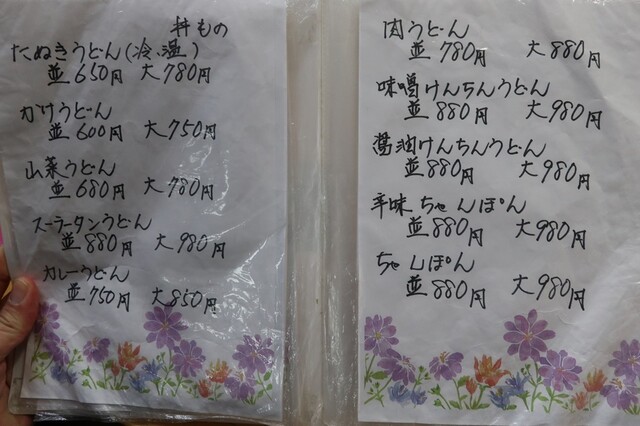 丼もの
たぬきうどん(冷、温)
並650円 大780円
かけうどん
並600円 大750円
山菜うどん
並680円 大780円
スーラータンうどん
並880円 大980円
カレーうどん
並750円 大850円
肉うどん
並780円 大880円
味噌けんちんうどん
並880円 大980円
醤油けんちんうどん
並880円 大980円
辛味ちゃんぽん
並880円 大980円
ちゃんぽん
並880円 大980円